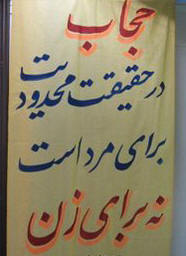 حجاب
در حقیقت محدودیت
برای مرد است
نه برای زن